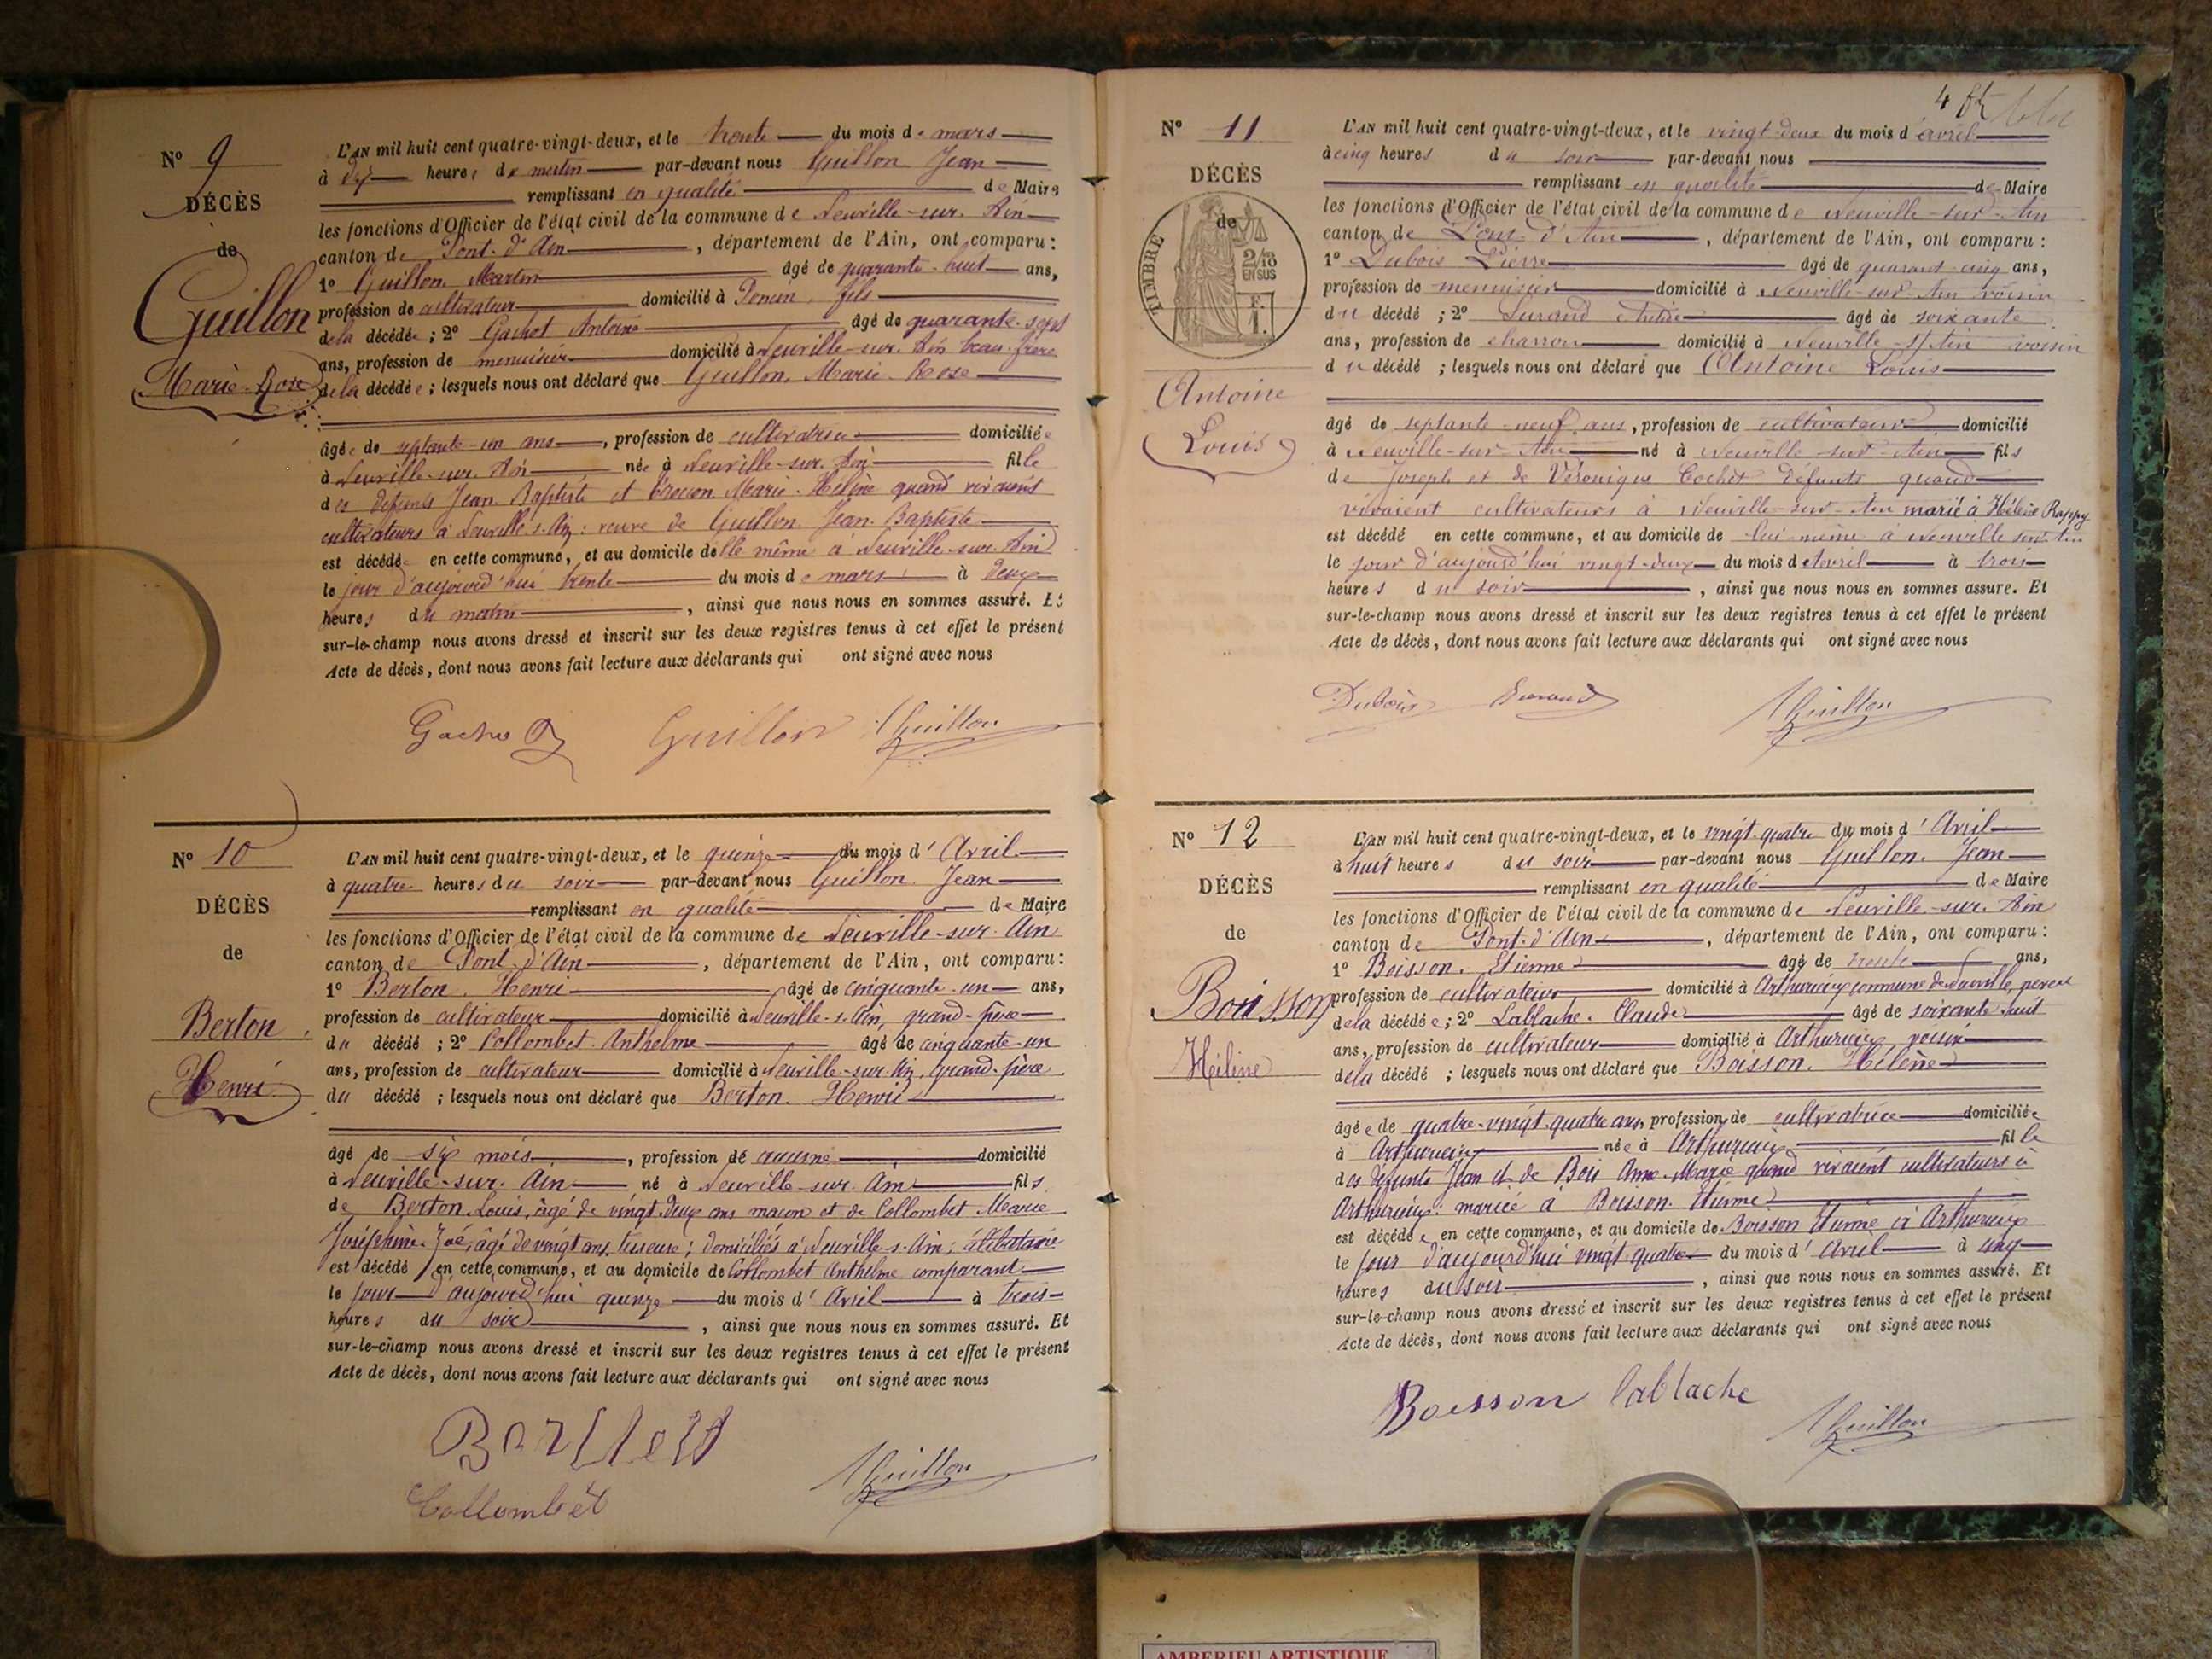 N° 9
DÉCÈS
de
Guillon
Marie-Rose
L'AN mil huit cent quatre-vingt-deux, et le trente du mois de mars
à dix heures du matin par-devant nous Guillon Jean
remplissant en qualité de Maire
les fonctions d'Officier de l'état civil de la commune de Neuville-sur-Ain
canton de Pont-d'Ain, département de l'Ain, ont comparu :
1° Guillon Martin âgé de quarante-huit ans,
profession de cultivateur domicilié à Poncin, fils
de la décédée ; 2° Gachot Antoine âgé de quarante-sept
ans, profession de menuisier domicilié à Neuville-sur-Ain beau-frère
de la décédée ; lesquels nous ont déclaré que Guillon, Marie-Rose
âgée de septante-un ans, profession de cultivatrice domiciliée
à Neuville-sur-Ain née à Neuville-sur-Ain fille
des défunts Jean-Baptiste et Marie-Hélène quand vivaient
cultivateurs à Neuville-s-Ain : veuve de Guillon Jean-Baptiste
est décédée en cette commune, et au domicile d'elle même à Neuville-sur-Ain
le jour d'aujourd'hui trente du mois de mars à deux
heures du matin, ainsi que nous nous en sommes assuré. Et
sur-le-champ nous avons dressé et inscrit sur les deux registres tenus à cet effet le présent
Acte de décès, dont nous avons fait lecture aux déclarants qui ont signé avec nous
Gachot Guillon Guillon
N° 10
DÉCÈS
de
Berton
Henri
L'AN mil huit cent quatre-vingt-deux, et le quinze du mois d'Avril
à quatre heures du soir par-devant nous Guillon Jean
remplissant en qualité de Maire
les fonctions d'Officier de l'état civil de la commune de Neuville-sur-Ain
canton de Pont-d'Ain, département de l'Ain, ont comparu :
1° Berton, Henri âgé de cinquante-un ans,
profession de cultivateur domicilié à Neuville-s-Ain, grand-père
du décédé ; 2° Collombet Anthelme âgé de cinquante-un
ans, profession de cultivateur domicilié à Neuville-sur-Ain, grand-père
du décédé ; lesquels nous ont déclaré que Berton Henri
âgé de six mois, profession de aucune domicilié
à Neuville-sur-Ain né à Neuville-sur-Ain fils
de Berton Louis, âgé de vingt-deux ans maçon et de Collombet Marie
Joséphine-Zoé, âgé de vingt ans, tisseuse ; domiciliés à Neuville-s-Ain ; célibataire
est décédé en cette commune, et au domicile de Collombet Anthelme comparant
le jour d'aujourd'hui quinze du mois d'Avril à trois
heures du soir, ainsi que nous nous en sommes assuré. Et
sur-le-champ nous avons dressé et inscrit sur les deux registres tenus à cet effet le présent
Acte de décès, dont nous avons fait lecture aux déclarants qui ont signé avec nous
Guillon
Collombet
4
N° 11
DÉCÈS
de
TIMBRE
2/10
EN SUS
F
1.
Antoine
Louis
L'AN mil huit cent quatre-vingt-deux, et le vingt-deux du mois d'avril
à cinq heures du soir par-devant nous
remplissant en qualité de Maire
les fonctions d'Officier de l'état civil de la commune de Neuville-sur-Ain
canton de Pont-d'Ain, département de l'Ain, ont comparu :
1° Dubois Pierre âgé de quarante-cinq ans,
profession de menuisier domicilié à Neuville-sur-Ain voisin
du décédé ; 2° Durand âgé de soixante
ans, profession de charron domicilié à Neuville-s/Ain voisin
du décédé ; lesquels nous ont déclaré que Antoine Louis
âgé de septante-neuf ans, profession de cultivateur domicilié
à Neuville-sur-Ain né à Neuville-sur-Ain fils
de Joseph et de Véronique Cochet défunts quand
vivaient cultivateurs à Neuville-sur-Ain marié à Hélène Rappy
est décédé en cette commune, et au domicile de lui-même à Neuville sur Ain
le jour d'aujourd'hui vingt-deux du mois d'Avril à trois
heures du soir, ainsi que nous nous en sommes assuré. Et
sur-le-champ nous avons dressé et inscrit sur les deux registres tenus à cet effet le présent
Acte de décès, dont nous avons fait lecture aux déclarants qui ont signé avec nous
Dubois Durand Guillon
N° 12
DÉCÈS
de
Boisson
Hélène
L'AN mil huit cent quatre-vingt-deux, et le vingt-quatre du mois d'Avril
à huit heures du soir par-devant nous Guillon, Jean
remplissant en qualité de Maire
les fonctions d'Officier de l'état civil de la commune de Neuville-sur-Ain
canton de Pont-d'Ain, département de l'Ain, ont comparu :
1° Boisson, Etienne âgé de trente ans,
profession de cultivateur domicilié à commune de Neuville, neveu
de la décédée ; 2° Lablache, Claude âgé de soixante-huit
ans, profession de cultivateur domicilié à voisin
de la décédé ; lesquels nous ont déclaré que Boisson, Hélène
âgée de quatre-vingt-quatre ans, profession de cultivatrice domiciliée
à née à fille
des défunts Jean et de Bon Anne-Marie quand vivaient cultivateurs à
mariée à Boisson Etienne
est décédée en cette commune, et au domicile de Boisson Etienne à
le jour d'aujourd'hui vingt-quatre du mois d'Avril à cinq
heures du soir, ainsi que nous nous en sommes assuré. Et
sur-le-champ nous avons dressé et inscrit sur les deux registres tenus à cet effet le présent
Acte de décès, dont nous avons fait lecture aux déclarants qui ont signé avec nous
Boisson Lablache
Guillon
AMBERIEU ARTISTIQUE